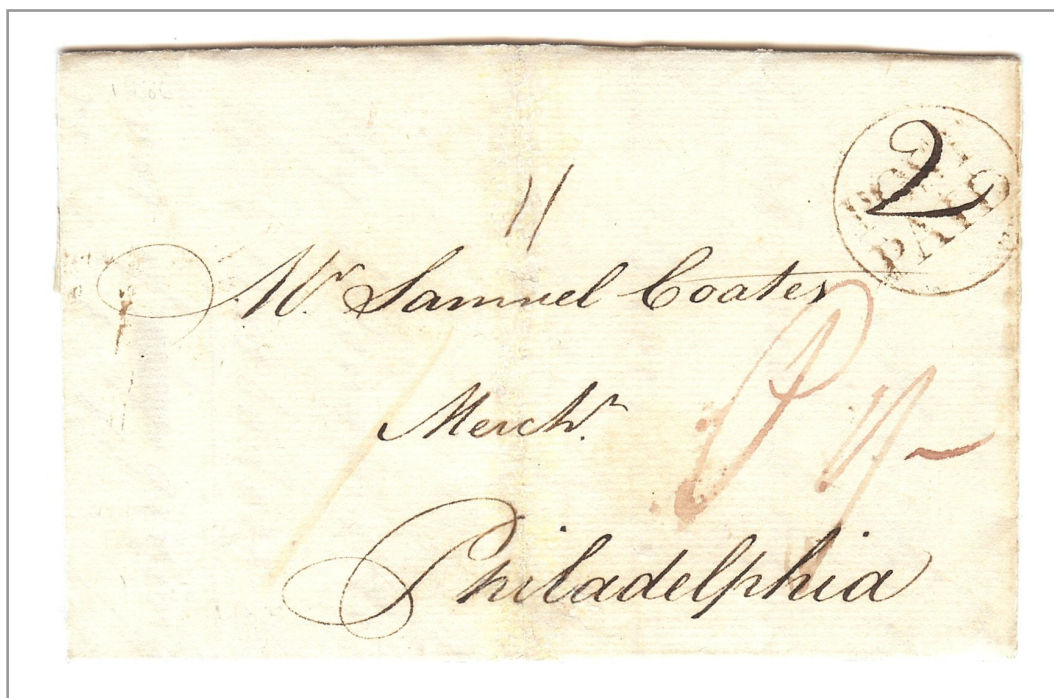 2
PAID
11
Mr. Samuel Coates
Mercht.
Philadelphia